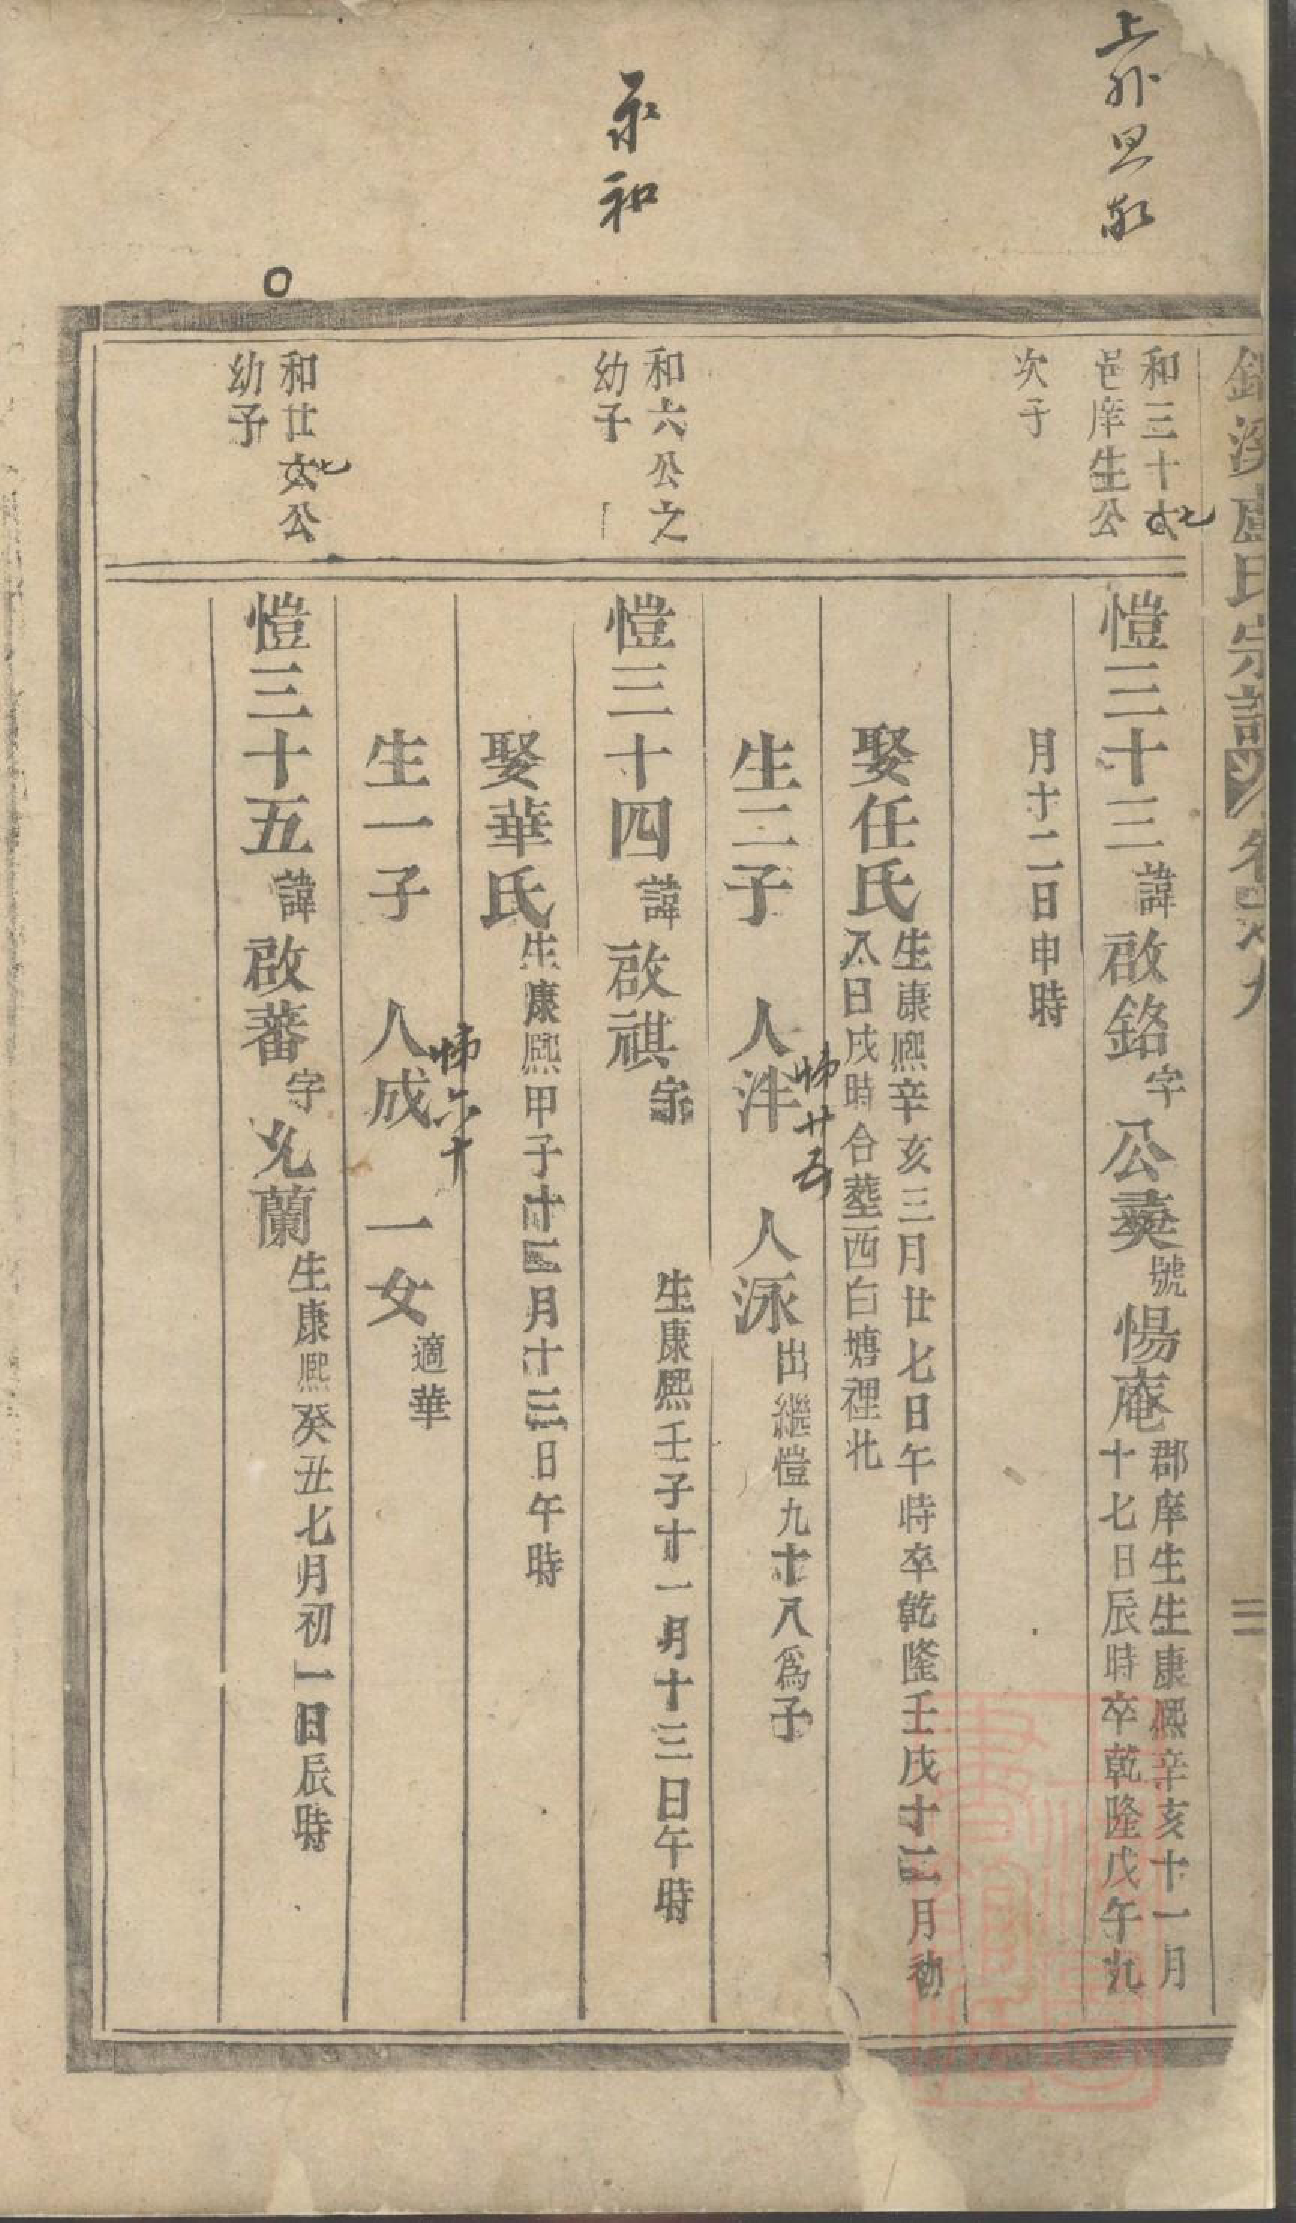 盧氏宗譜
和三十六
邑庠生公
次子
愷三十三諱啟銘字公燕號惕庵郡庠生生康熙辛亥十一月
十七日辰時卒乾隆戊午九
月十二日申時
娶任氏生康熙辛亥三月廿七日午時卒乾隆壬戌十二月初
八日戌時合塟西白塘裡北
生二子 人泮 人泳出繼愷九十八為子
永和
和六公之
幼子
愷三十四諱啟祺字 生康熙壬子十一月十三日午時
娶華氏生康熙甲子十二月十三日午時
生一子 人成 一女適華
和廿六公
七
幼子
愷三十五諱啟蕃字允蘭生康熙癸丑七月初一日辰時